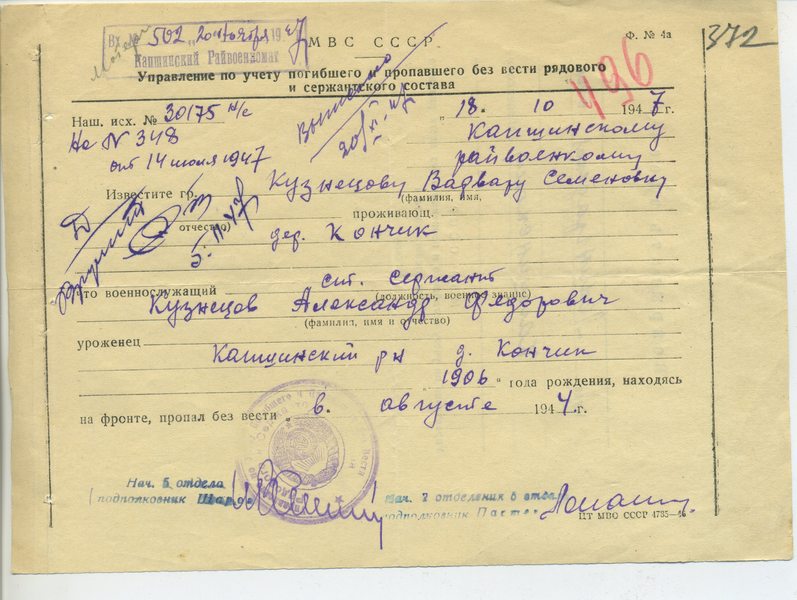 Вх. № 502 „20" ноября 1947
Капшинский Райвоенкомат
МВС СССР
Ф. № 4а
372
496
Управление по учету погибшего и пропавшего без вести рядового
и сержантского состава
Наш. исх. № 30175 н/с
„18. 10 1947 г.
На № 348
от 14 июля 1947
Капшинскому
райвоенкому
Выписано
Известите гр. Кузнецову Семеновну
(фамилия, имя,
отчество)
проживающ.
дер. Кончик
Вручить
что военнослужащий ст. сержант
(должность, военное звание)
Кузнецов Александр Федорович
(фамилия, имя и отчество)
уроженец
Капшинский р-н д. Кончик
1906 года рождения, находясь
на фронте, пропал без вести в августе 1944 г.
Нач. 5 отдела
подполковник
Нач. 2 отделения 5 отдела
подполковник
ЦТ МВС СССР 4785—46